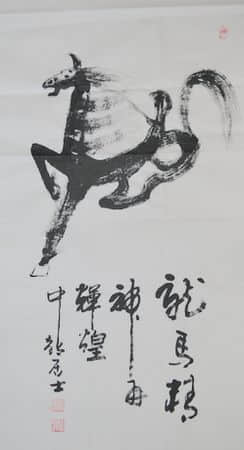 龍馬精
神再
輝煌
中居士